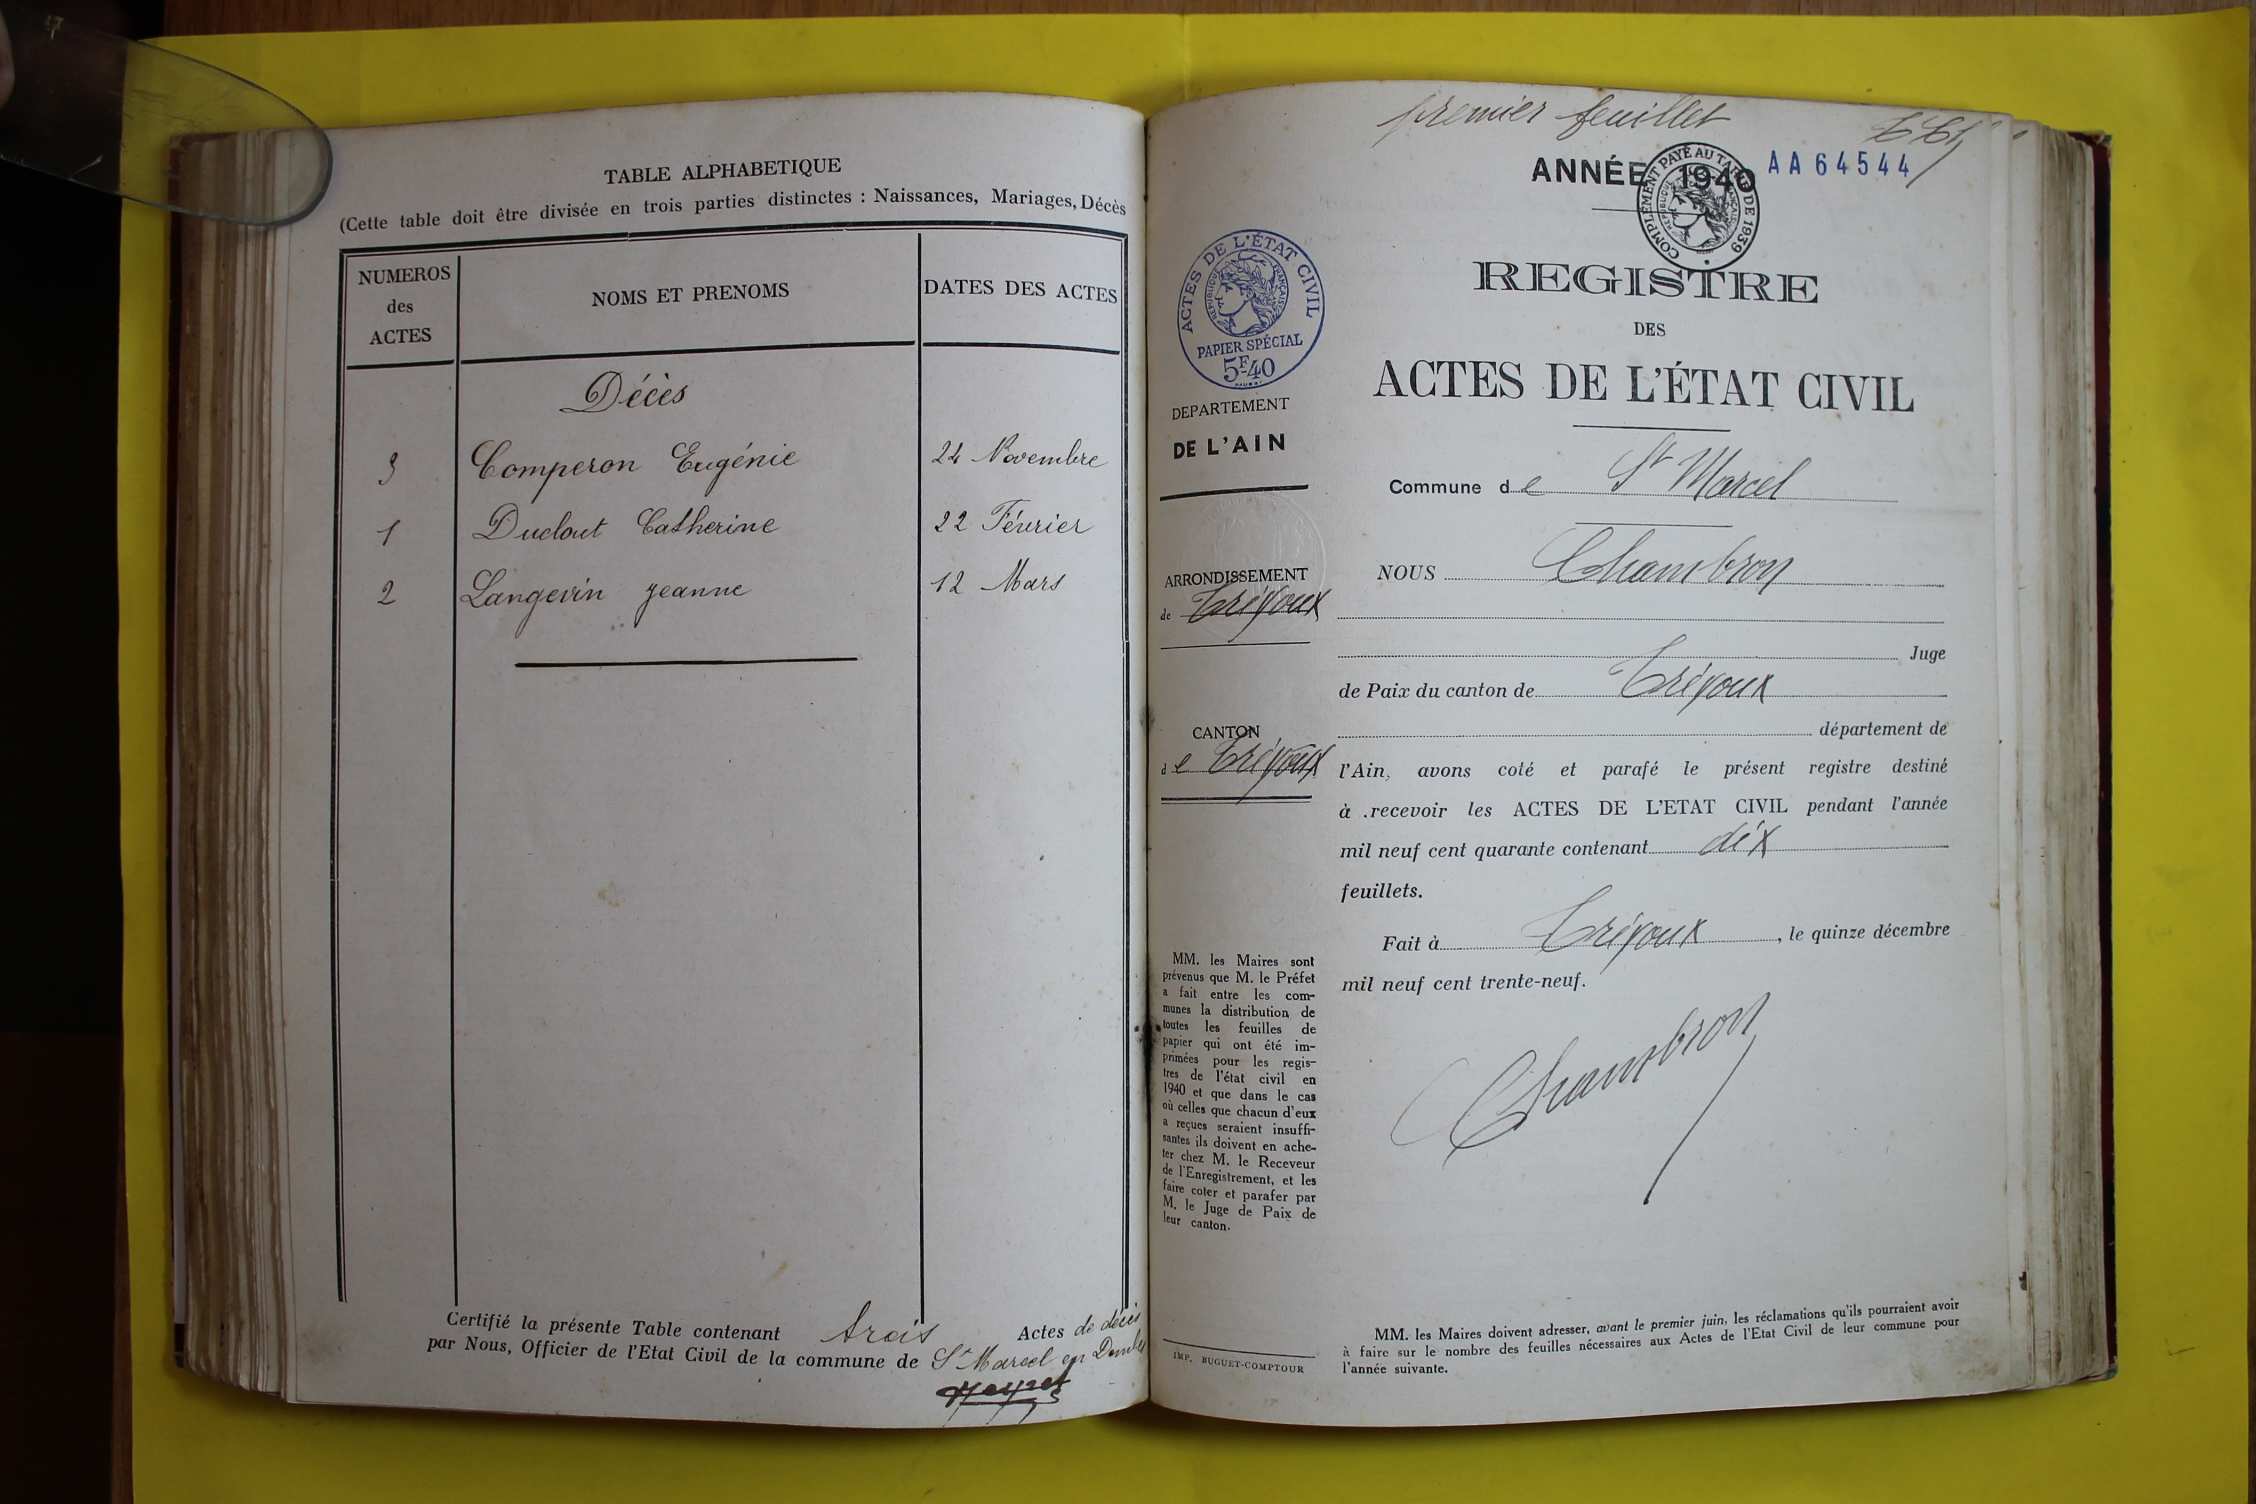 TABLE ALPHABETIQUE
(Cette table doit être divisée en trois parties distinctes : Naissances, Mariages, Décès
NUMEROS
des
ACTES
NOMS ET PRENOMS
DATES DES ACTES
Décès
3 Comperon Eugénie 24 Novembre
1 Duclout Catherine 22 Février
2 Langevin Jeanne 12 Mars
Certifié la présente Table contenant trois Actes de décès
par Nous, Officier de l'Etat Civil de la commune de St Marcel en Dombes
premier feuillet
ANNÉE 1940
AA 64544
COMPLÉMENT PAYÉ AU TARIF DE 1939
RÉPUBLIQUE FRANÇAISE
ACTES DE L'ÉTAT CIVIL
RÉPUBLIQUE FRANÇAISE
PAPIER SPÉCIAL
5F40
DEPARTEMENT
DE L'AIN
ARRONDISSEMENT
de Trévoux
CANTON
de Trévoux
MM. les Maires sont
prévenus que M. le Préfet
a fait entre les com-
munes la distribution de
toutes les feuilles de
papier qui ont été im-
primées pour les regis-
tres de l'état civil en
1940 et que dans le cas
où celles que chacun d'eux
a reçues seraient insuffi-
santes ils doivent en ache-
ter chez M. le Receveur
de l'Enregistrement, et les
faire coter et parafer par
M. le Juge de Paix de
leur canton.
IMP. BUGUET-COMPTOUR
REGISTRE
DES
ACTES DE L'ÉTAT CIVIL
Commune de St Marcel
NOUS Chambron
Juge
de Paix du canton de Trévoux
département de
l'Ain, avons coté et parafé le présent registre destiné
à .recevoir les ACTES DE L'ETAT CIVIL pendant l'année
mil neuf cent quarante contenant dix
feuillets.
Fait à Trévoux, le quinze décembre
mil neuf cent trente-neuf.
Chambron
MM. les Maires doivent adresser, avant le premier juin, les réclamations qu'ils pourraient avoir
à faire sur le nombre des feuilles nécessaires aux Actes de l'Etat Civil de leur commune pour
l'année suivante.